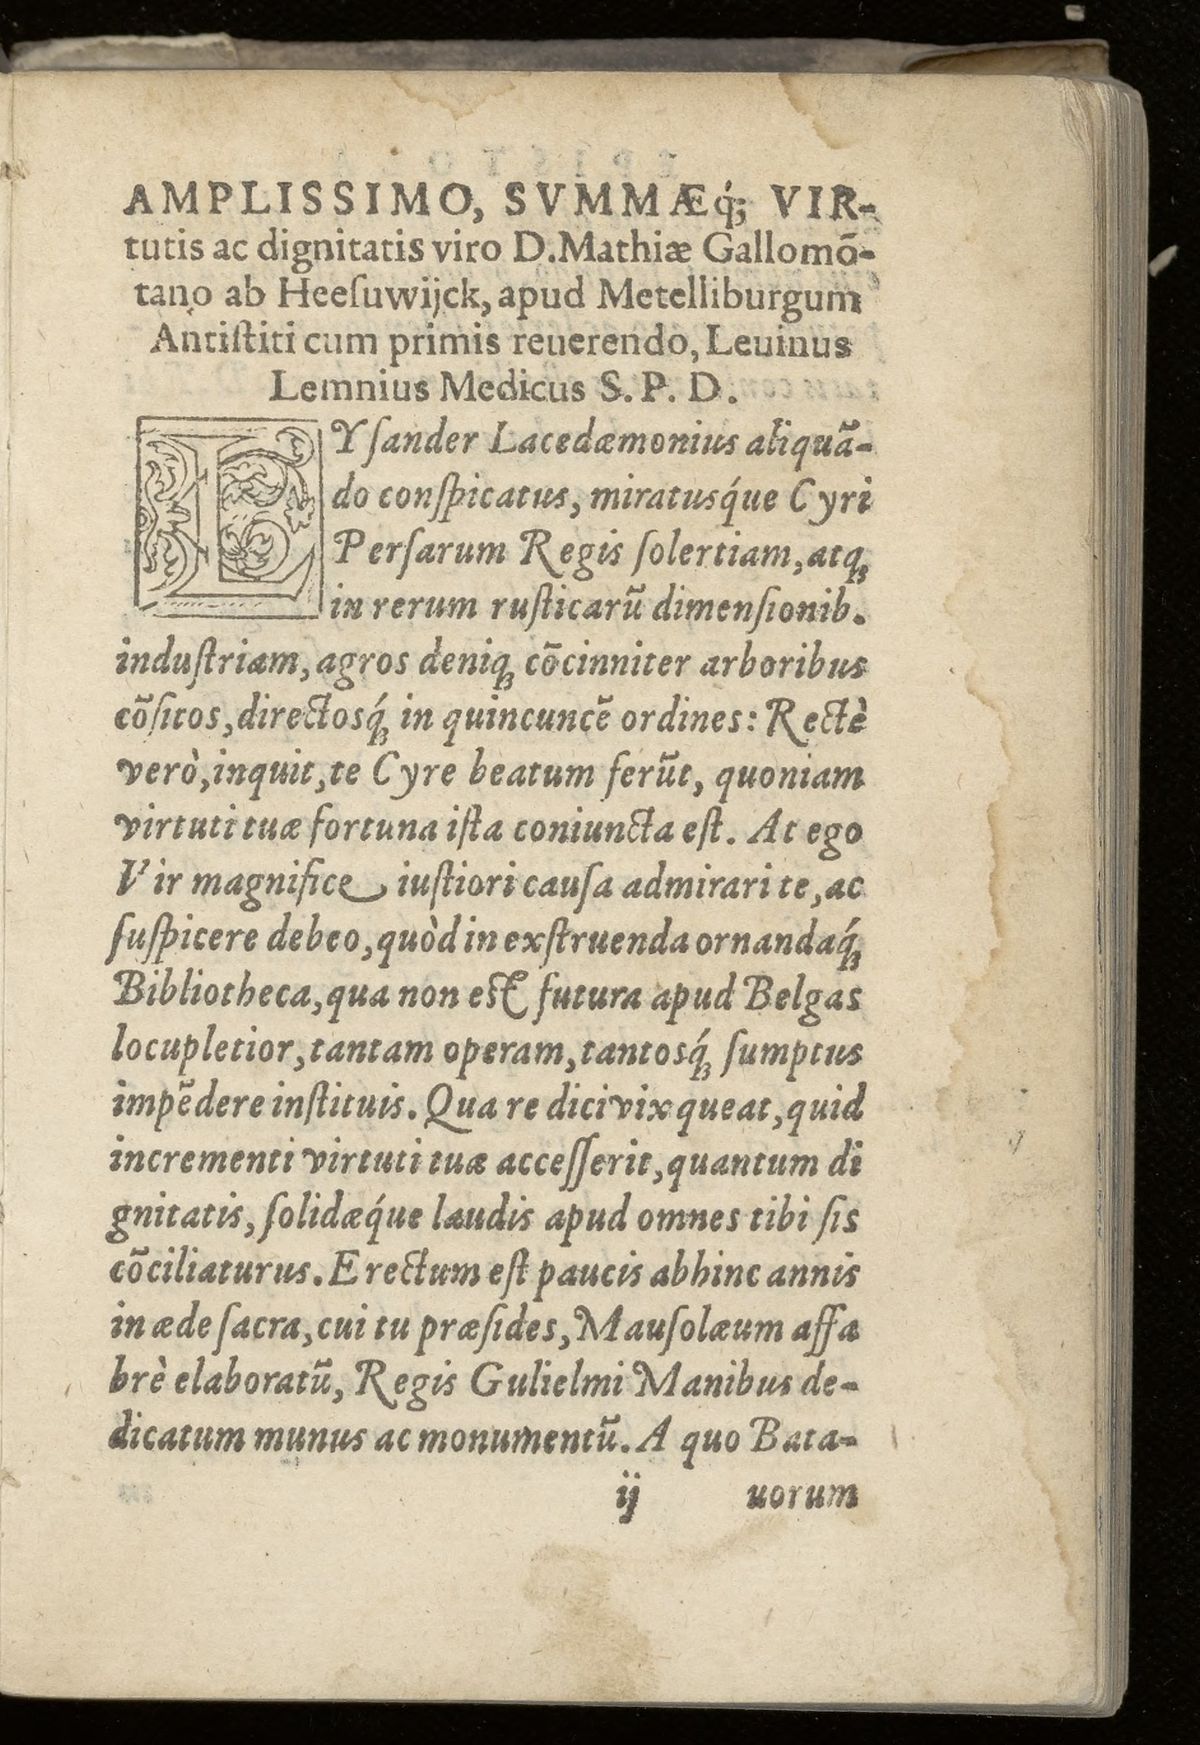 AMPLISSIMO, SVMMÆq́; VIR-
tutis ac dignitatis viro D.Mathiæ Gallomō-
tano ab Heeſuwijck, apud Metelliburgum
Antiſtiti cum primis reuerendo, Leuinus
Lemnius Medicus S. P. D.
LYſander Lacedæmonius aliquā-
do conſpicatus, miratusq́ue Cyri
Perſarum Regis ſolertiam, atqꝫ
in rerum ruſticarū dimenſionib.
induſtriam, agros deniqꝫ cōcinniter arboribus
cōſitos, directosq́ꝫ in quincuncē ordines: Rectè
verò, inquit, te Cyre beatum ferūt, quoniam
virtuti tuæ fortuna iſta coniuncta eſt. At ego
Vir magnifice iuſtiori cauſa admirari te, ac
ſuſpicere debeo, quòd in exſtruenda ornandaq́ꝫ
Bibliotheca, qua non est futura apud Belgas
locupletior, tantam operam, tantosq́ꝫ ſumptus
impēdere inſtituis. Qua re dici vix queat, quid
incrementi virtuti tuæ acceſſerit, quantum di
gnitatis, ſolidæq́ue laudis apud omnes tibi ſis
cōciliaturus. Erectum eſt paucis abhinc annis
in æde ſacra, cui tu præſides, Mauſolæum affa
brè elaboratū, Regis Gulielmi Manibus de-
dicatum munus ac monumentū. A quo Bata-
ij uorum